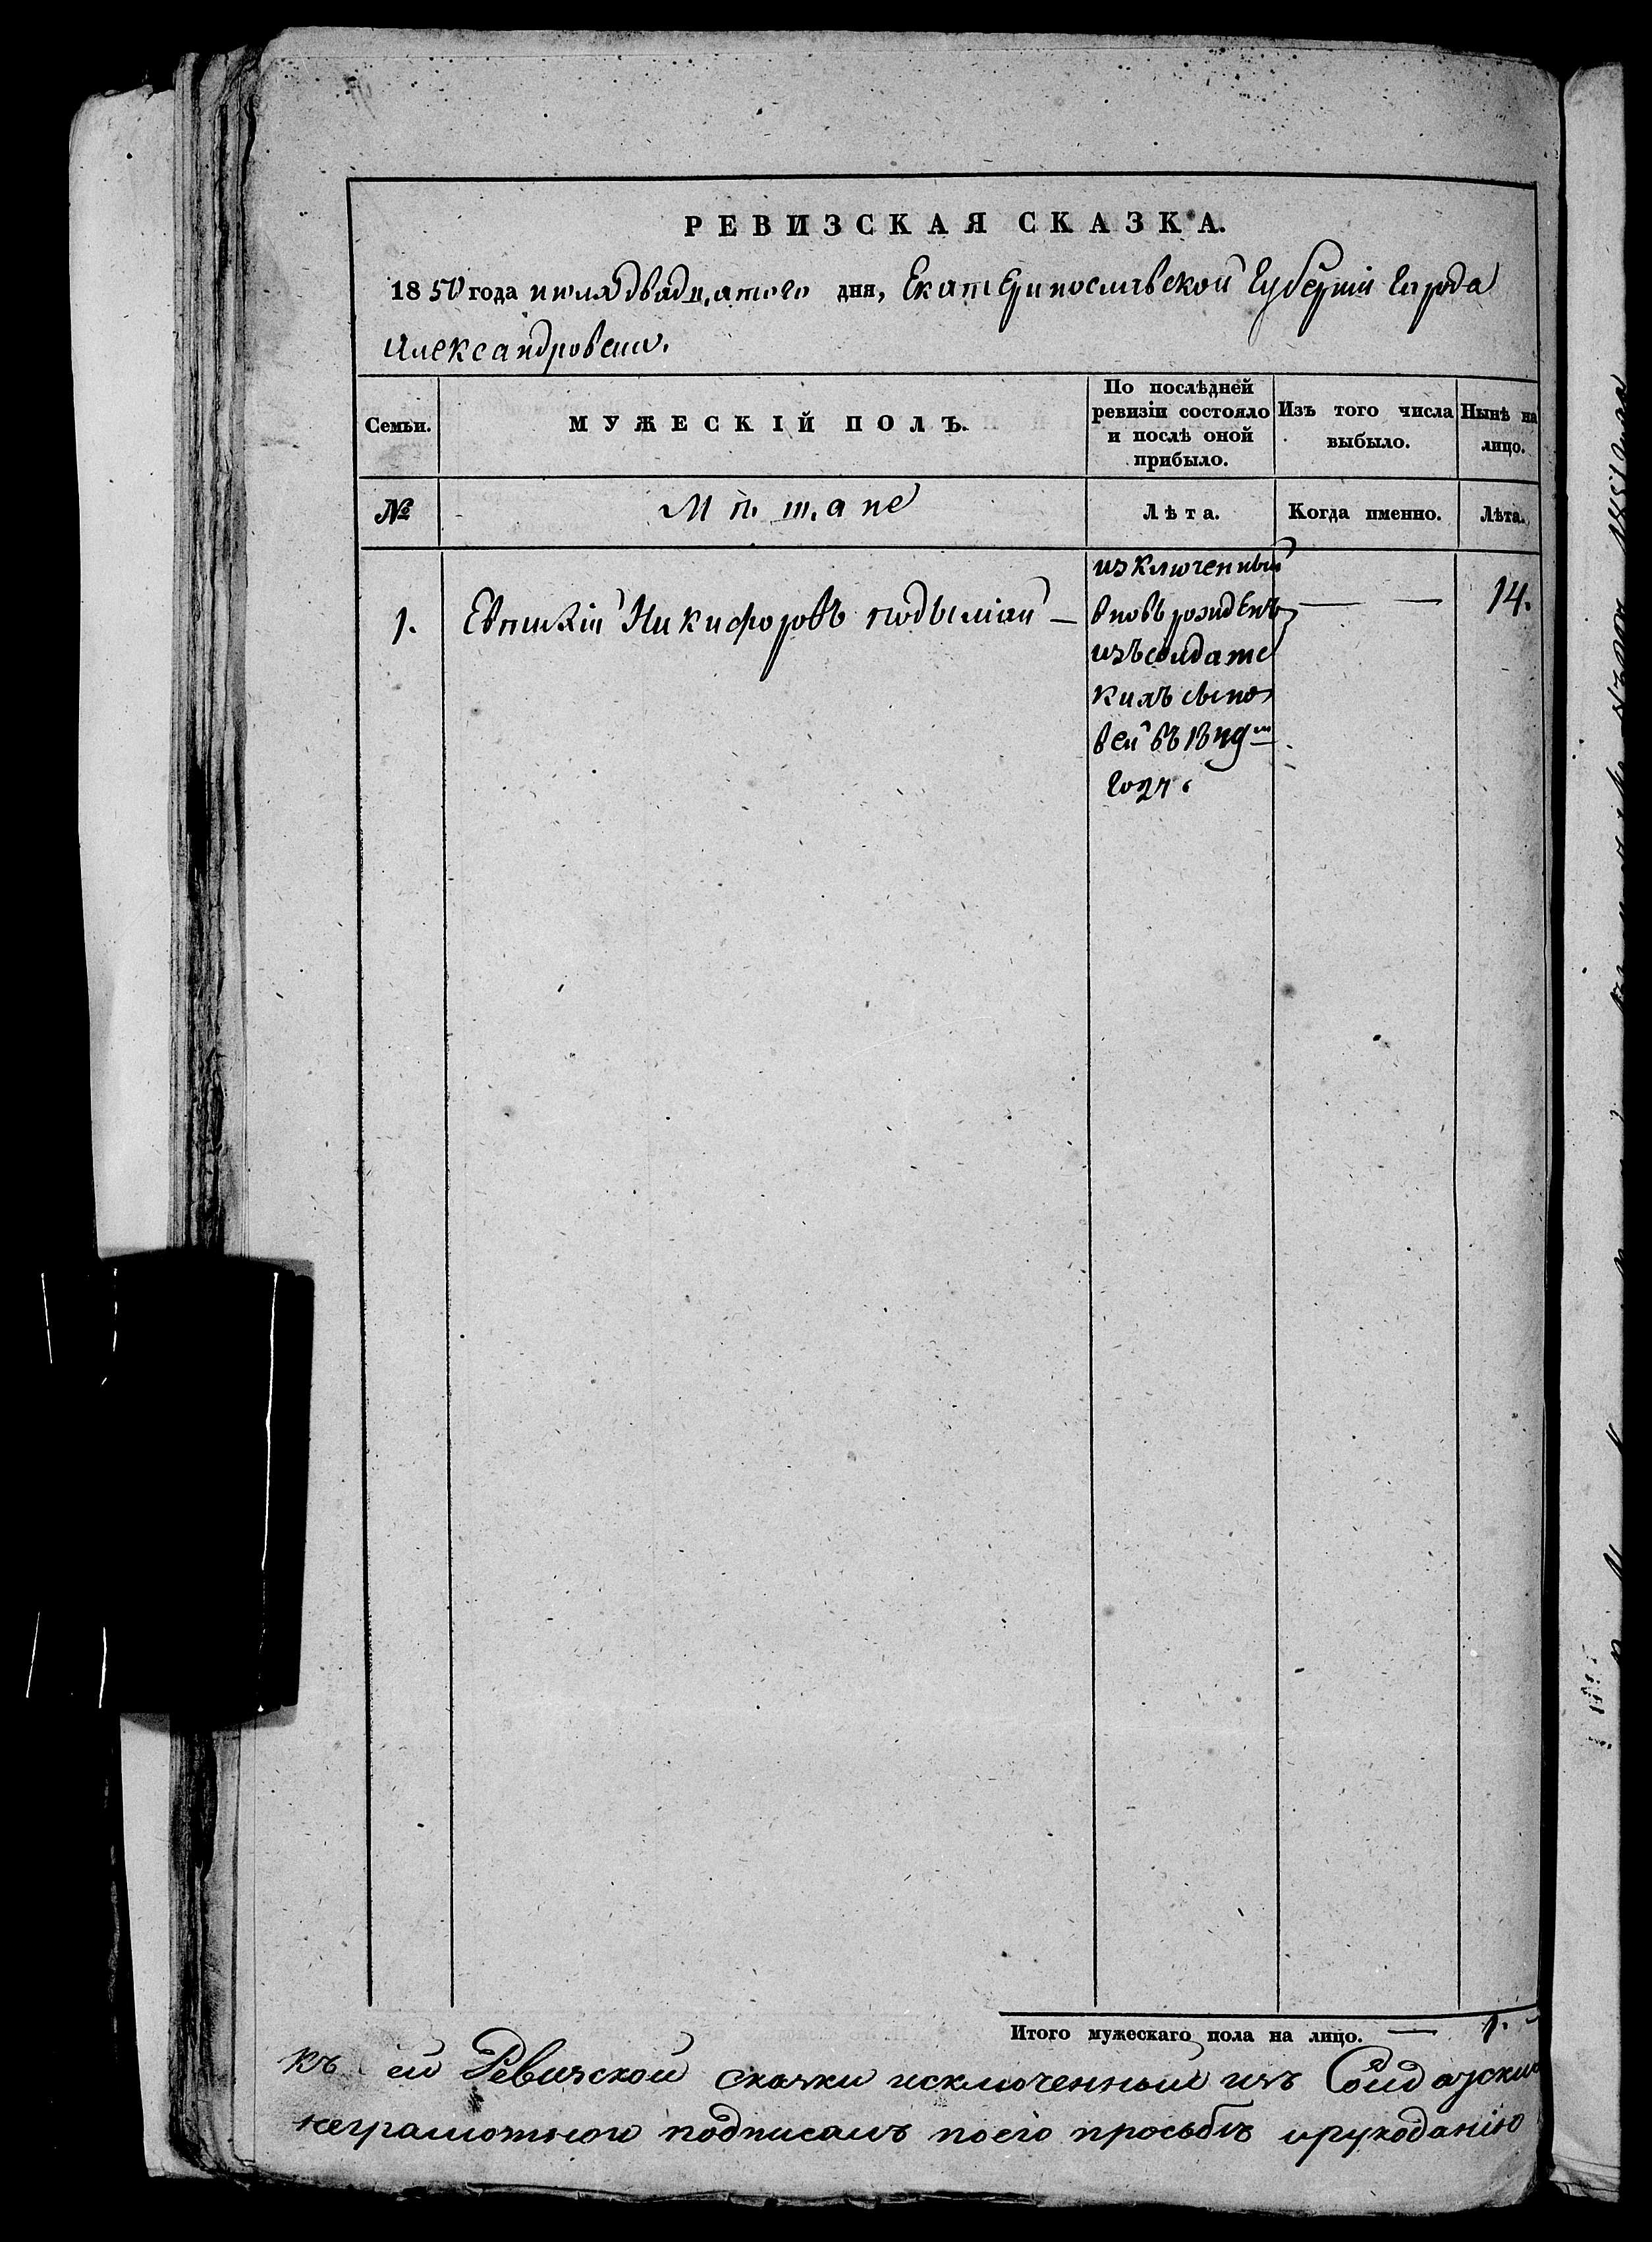 РЕВИЗСКАЯ СКАЗКА.
1850 года июля двадцатого дня, Екатеринославской Губерніи Города
Александровска.
Семьи. МУЖЕСКІЙ ПОЛЪ. По послѣдней ревизіи состояло и послѣ оной прибыло. Изъ того числа выбыло. Нынѣ на лицо.
№ Мѣщане Лѣта. Когда именно. Лѣта.
1. Никифоровъ — — — 14.
изключеный
вновь рожденъ
изъ солдатс
кихъ сыно
вей въ 1849м
году
Итого мужескаго пола на лицо. — 1.
Къ сей Ревизской сказки исключенный изъ Солдатских
неграмотного подписалъ по его просьбѣ и рукоданію